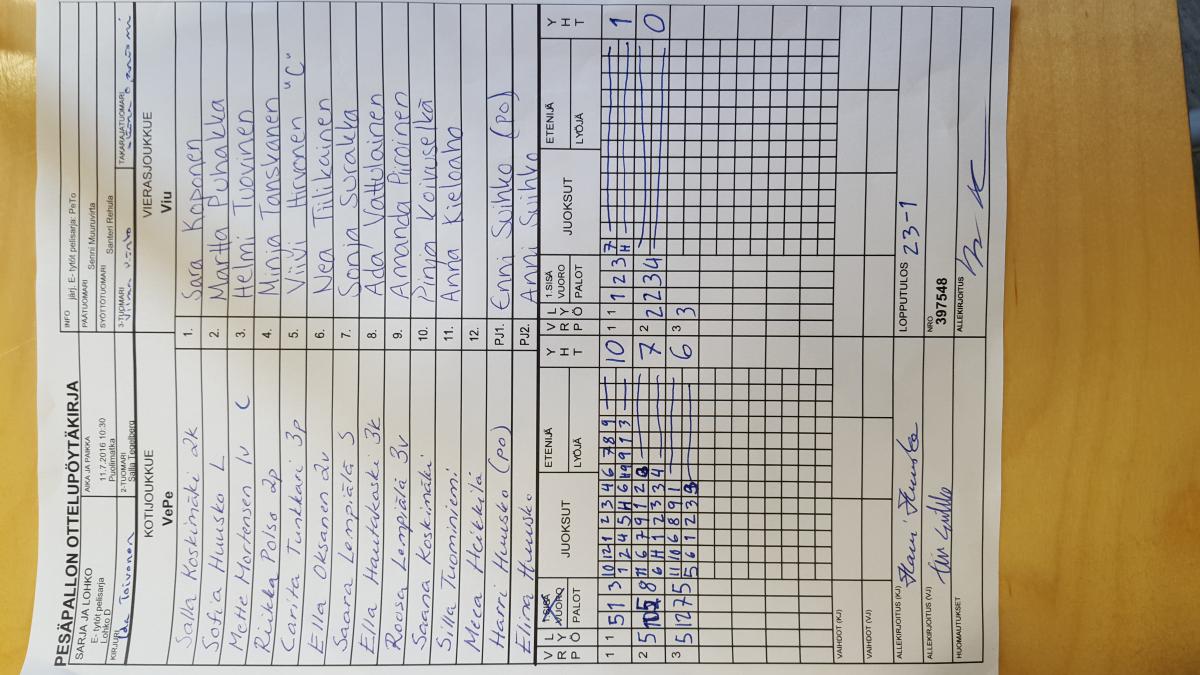 PESÄPALLON OTTELUPÖYTÄKIRJA
SARJA JA LOHKO
E- tytöt pelisarja
Lohko D
AIKA JA PAIKKA
11.7.2016 10:30
Puolimatka
INFO järj. E- tytöt pelisarja: PeTo
PÄÄTUOMARI Senni Muuruvirta
SYÖTTÖTUOMARI Santeri Rehula
KIRJURI Ida Toivonen
2-TUOMARI
Salla Tegelberg
3-TUOMARI
TAKARAJATUOMARI
KOTIJOUKKUE
VePe
VIERASJOUKKUE
Viu
Salla Koskimäki 2k
1. Sara Koponen
Sofia Huusko L
2. Martta Puhakka
Mette Mortensen 1v C
3. Helmi Tuovinen
Ruikka Polso 2p
4. Minja Tanskanen
Carita Tunkkari 3p
5. Viivi Hirvonen "C"
Ella Oksanen 2v
6. Nea Tiilikainen
Saara Lempiälä S
7. Sonja Surakka
Ella Hautakoski 3k
8. Ada Vattulainen
Roosa Lempiälä 3v
9. Amanda Piiroinen
Saana Koskimäki
10. Pinja Koivuselkä
Silla Tuominiemi
11. Anna Kieloaho
Meea Heikkilä
12.
Harri Huusko (PO)
PJ1. Enni Suihko (PO)
Elina Huusko
PJ2. Anni Suihko
V R P
L Y Ö
VUORO
PALOT
JUOKSUT
ETENIJÄ
LYÖJÄ
Y H T
V R P
L Y Ö
1.SISÄ
VUORO
PALOT
JUOKSUT
ETENIJÄ
LYÖJÄ
Y H T
1 1 5 1 3 10 12 1 1 2 3 4 6 7 8 9 10
1 2 4 5 H 6 H9 9 1 1 3
1 1 1 2 3 7 1
H
2 5 8 11 6 7 9 1 2 3 7
6 H 1 2 3 3 4
2 2 2 3 4 0
3 5 12 7 5 11 10 6 8 9 1 6
5 6 1 2 3 3
3 3
VAIHDOT (KJ)
VAIHDOT (VJ)
ALLEKIRJOITUS (KJ)
LOPPUTULOS 23-1
ALLEKIRJOITUS (VJ)
NRO
397548
HUOMAUTUKSET
ALLEKIRJOITUS